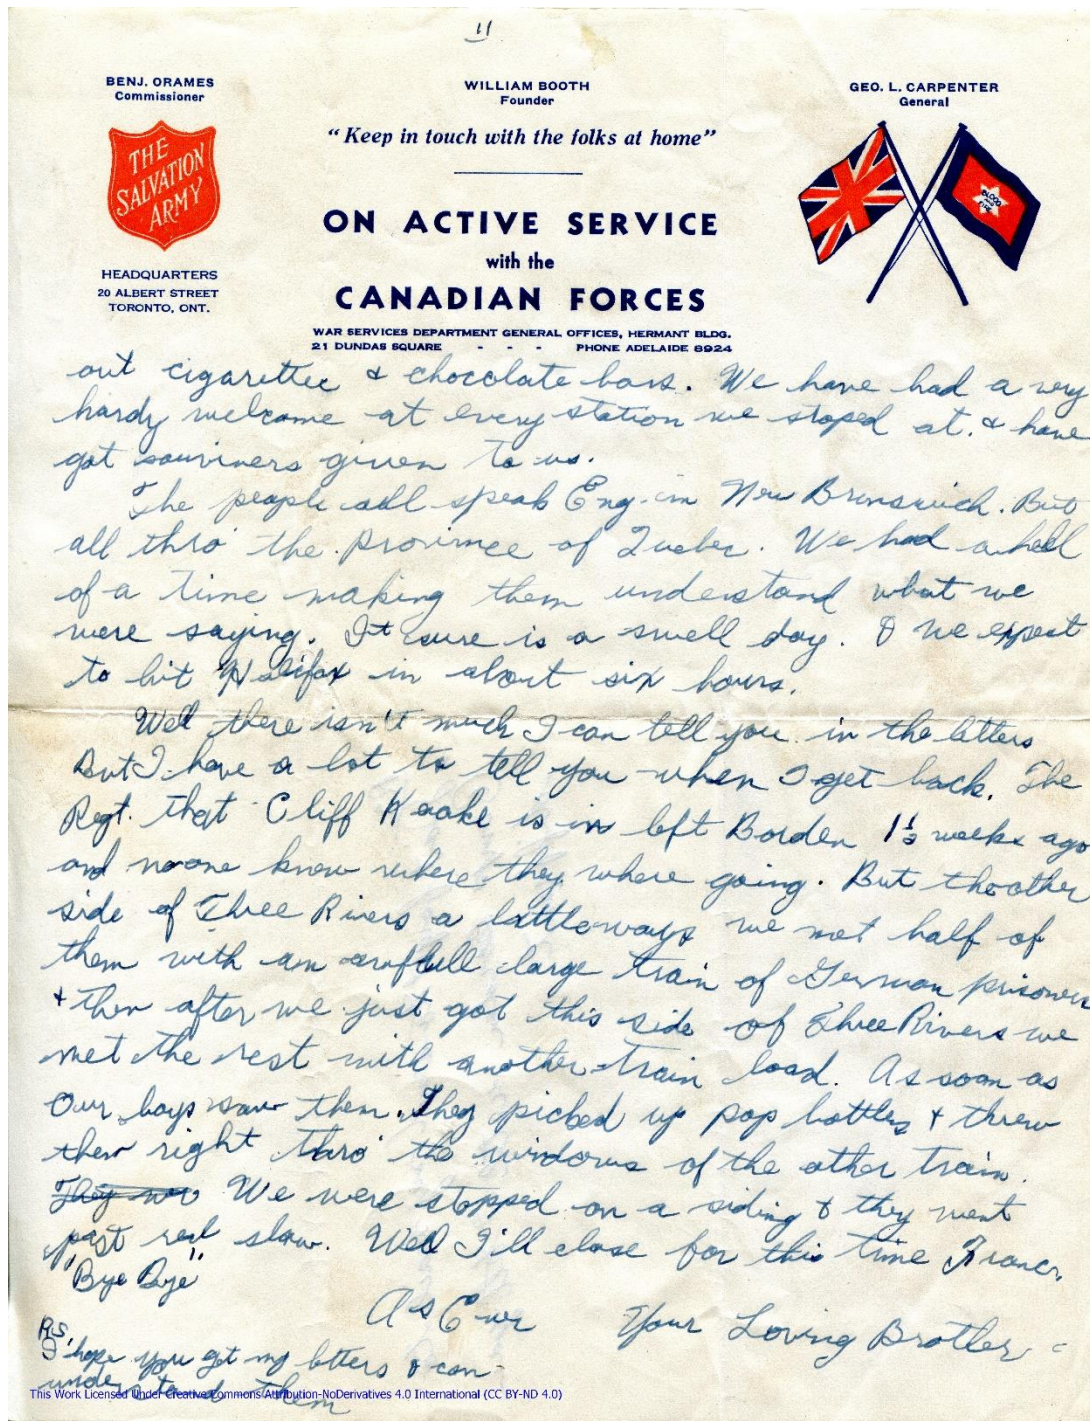 11
BENJ. ORAMES
Commissioner
WILLIAM BOOTH
Founder
GEO. L. CARPENTER
General
"Keep in touch with the folks at home"
THE
SALVATION
ARMY
BLOOD
AND
FIRE
ON ACTIVE SERVICE
with the
CANADIAN FORCES
HEADQUARTERS
20 ALBERT STREET
TORONTO, ONT.
WAR SERVICES DEPARTMENT GENERAL OFFICES, HERMANT BLDG.
21 DUNDAS SQUARE - - - PHONE ADELAIDE 8924
out cigarettee & chocolate bars. We have had a very
hardy welcome at every station we stoped at. & have
got souviners given to us.
The people all speak Eng. in New Brunswich. But
all thro' the province of Quebec. We had a hell
of a time making them understand what we
were saying. It sure is a swell day. & we expect
to hit Halifax in about six hours.
Well there isn't much I can tell you in the letters
But I have a lot to tell you when I get back. The
Regt. that Cliff is in left Borden 1½ weeks ago
and noone knew where they where going. But the other
side of Three Rivers a littleways we met half of
them with an large train of German prisoners
& then after we just got this side of Three Rivers we
met the rest with another train load. As soon as
Our boys saw them. They picked up pop bottles & threw
them right thro' the windows of the other train.
They We were stopped on a siding & they went
past real slow. Well I'll close for this time Franc.
"Bye Bye"
As Ever Your Loving Brother
P.S.
I hope you get my letters & can
understand them
This Work Licensed Under Creative Commons Attribution-NoDerivatives 4.0 International (CC BY-ND 4.0)